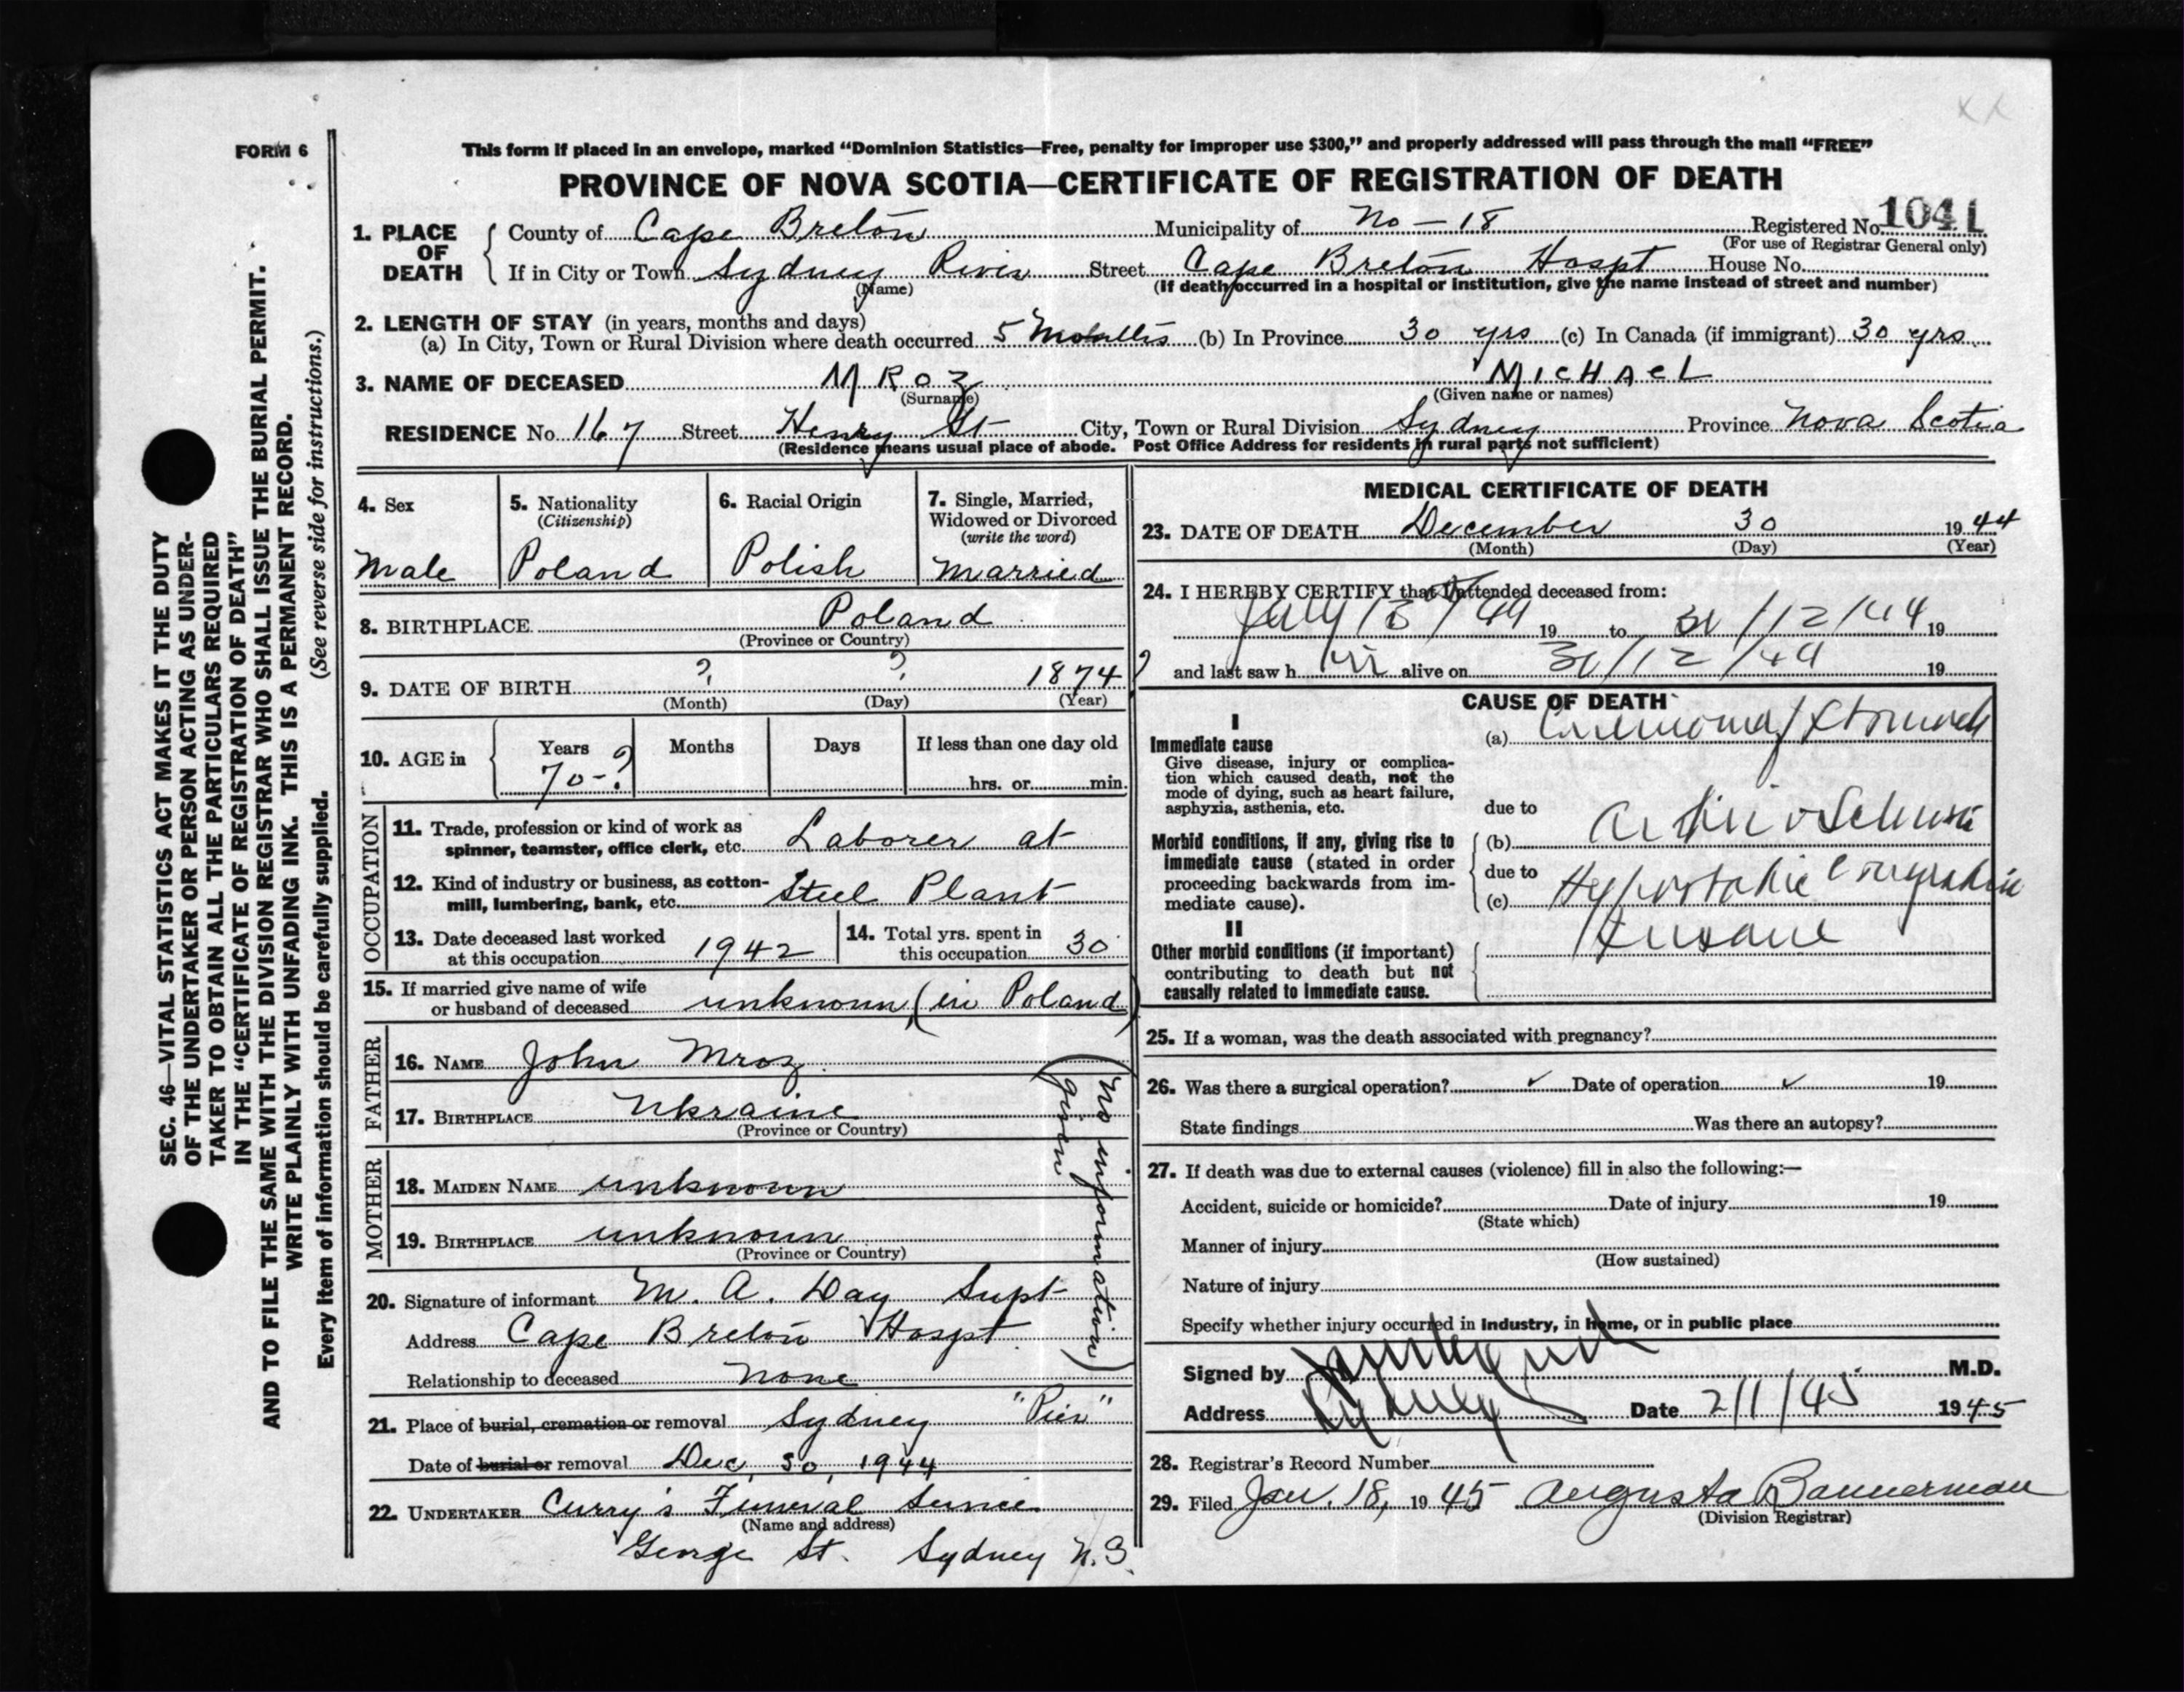 FORM 6
This form if placed in an envelope, marked “Dominion Statistics—Free, penalty for improper use $300,” and properly addressed will pass through the mail “FREE”
PROVINCE OF NOVA SCOTIA—CERTIFICATE OF REGISTRATION OF DEATH
1. PLACE OF DEATH
County of Cape Breton Municipality of No – 18 Registered No. 1041
(For use of Registrar General only)
If in City or Town Sydney River Street Cape Breton Hospt House No.
(Name) (If death occurred in a hospital or institution, give the name instead of street and number)
2. LENGTH OF STAY (in years, months and days)
(a) In City, Town or Rural Division where death occurred 5 Months (b) In Province 30 yrs (c) In Canada (if immigrant) 30 yrs
3. NAME OF DECEASED MROZ MICHAEL
(Surname) (Given name or names)
RESIDENCE No. 167 Street Henry St City, Town or Rural Division Sydney Province Nova Scotia
(Residence means usual place of abode. Post Office Address for residents in rural parts not sufficient)
SEC. 46—VITAL STATISTICS ACT MAKES IT THE DUTY
OF THE UNDERTAKER OR PERSON ACTING AS UNDER-
TAKER TO OBTAIN ALL THE PARTICULARS REQUIRED
IN THE “CERTIFICATE OF REGISTRATION OF DEATH”
AND TO FILE THE SAME WITH THE DIVISION REGISTRAR WHO SHALL ISSUE THE BURIAL PERMIT.
WRITE PLAINLY WITH UNFADING INK. THIS IS A PERMANENT RECORD.
Every item of information should be carefully supplied. (See reverse side for instructions.)
4. Sex
Male
5. Nationality
(Citizenship)
Poland
6. Racial Origin
Polish
7. Single, Married,
Widowed or Divorced
(write the word)
Married
8. BIRTHPLACE Poland
(Province or Country)
9. DATE OF BIRTH ? ? 1874
(Month) (Day) (Year)
10. AGE in Years Months Days If less than one day old
70-? hrs. or min.
OCCUPATION
11. Trade, profession or kind of work as
spinner, teamster, office clerk, etc. Laborer at
12. Kind of industry or business, as cotton-
mill, lumbering, bank, etc. Steel Plant
13. Date deceased last worked
at this occupation 1942
14. Total yrs. spent in
this occupation 30
15. If married give name of wife
or husband of deceased unknown (in Poland)
FATHER
16. NAME John Mroz
17. BIRTHPLACE Ukraine
(Province or Country)
MOTHER
18. MAIDEN NAME unknown
19. BIRTHPLACE unknown
(Province or Country)
(No information
given)
20. Signature of informant M. A. Day Supt
Address Cape Breton Hospt.
Relationship to deceased None
21. Place of burial, cremation or removal Sydney "Pier"
Date of burial or removal Dec, 30, 1944
22. UNDERTAKER Curry's Funeral Service
(Name and address)
George St. Sydney N.S.
MEDICAL CERTIFICATE OF DEATH
23. DATE OF DEATH December 30 1944
(Month) (Day) (Year)
24. I HEREBY CERTIFY that I attended deceased from:
July 13/44 19 to 30/12/44 19
and last saw h im alive on 30/12/44 19
CAUSE OF DEATH
I
Immediate cause
Give disease, injury or complica-
tion which caused death, not the
mode of dying, such as heart failure,
asphyxia, asthenia, etc.
(a) Carcinoma of Stomach
due to
Morbid conditions, if any, giving rise to
immediate cause (stated in order
proceeding backwards from im-
mediate cause).
(b) Arteriosclerosis
due to
(c) Hypostatic Congestion
II
Other morbid conditions (if important)
contributing to death but not
causally related to immediate cause.
Insane
25. If a woman, was the death associated with pregnancy?
26. Was there a surgical operation? ✓ Date of operation ✓ 19
State findings Was there an autopsy?
27. If death was due to external causes (violence) fill in also the following:—
Accident, suicide or homicide? Date of injury 19
(State which)
Manner of injury
(How sustained)
Nature of injury
Specify whether injury occurred in industry, in home, or in public place
Signed by M.D.
Address Sydney Date 2/1/45 1945
28. Registrar's Record Number
29. Filed Jan. 18, 1945 Augusta Bannerman
(Division Registrar)